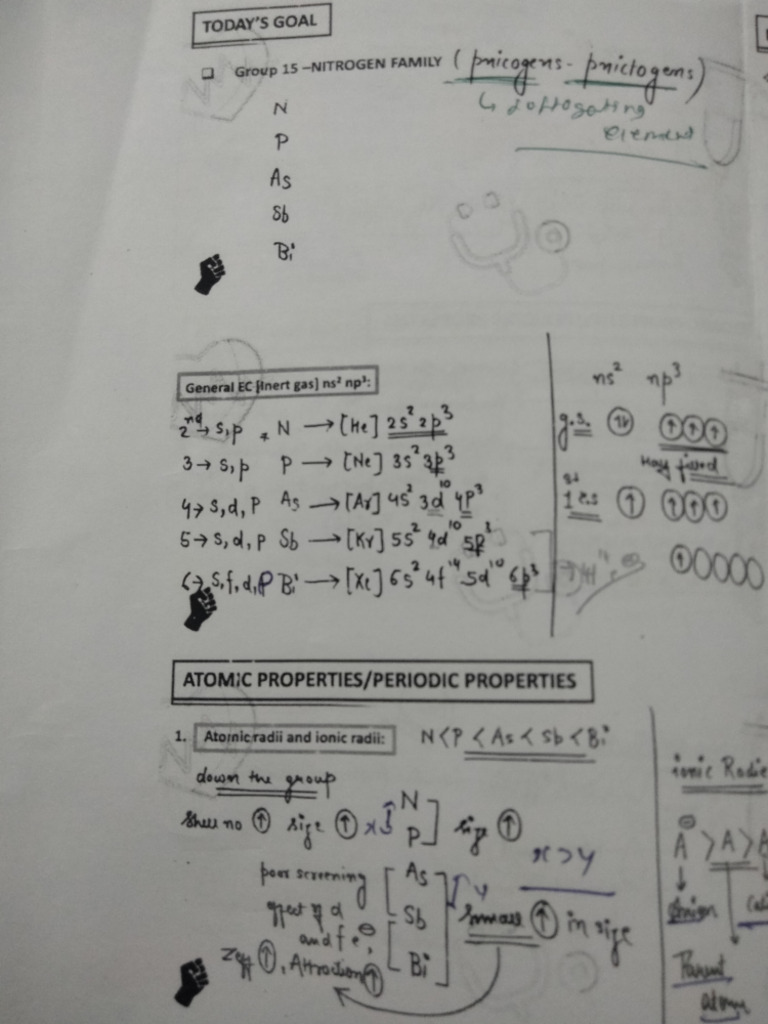 TODAY'S GOAL
Group 15 –NITROGEN FAMILY (pnicogens - pnictogens)
↳ soffogating
element
N
P
As
Sb
Bi
General EC [Inert gas] ns² np³:
2nd → s,p N → [He] 2s² 2p³
3 → s,p P → [Ne] 3s² 3p³
4 → s,d,p As → [Ar] 4s² 3d¹⁰ 4p³
5 → s,d,p Sb → [Kr] 5s² 4d¹⁰ 5p³
6 → s,f,d,p Bi → [Xe] 6s² 4f¹⁴ 5d¹⁰ 6p³
ns² np³
g.s. ↑↓ ↑ ↑ ↑
Half filled
1st e.s ↑ ↑ ↑ ↑
↑
ATOMIC PROPERTIES/PERIODIC PROPERTIES
1. Atomic radii and ionic radii: N < P < As < Sb < Bi
down the group
Shell no ↑ size ↑ x N
P ] size ↑
x > y
poor screening
effect of d
and f e⊖,
Zeff ↑, Attraction ↑
As
Sb
Bi
y
Small ↑ in size
ionic Radie
A⊖ > A > A
Anion
Parent
atom